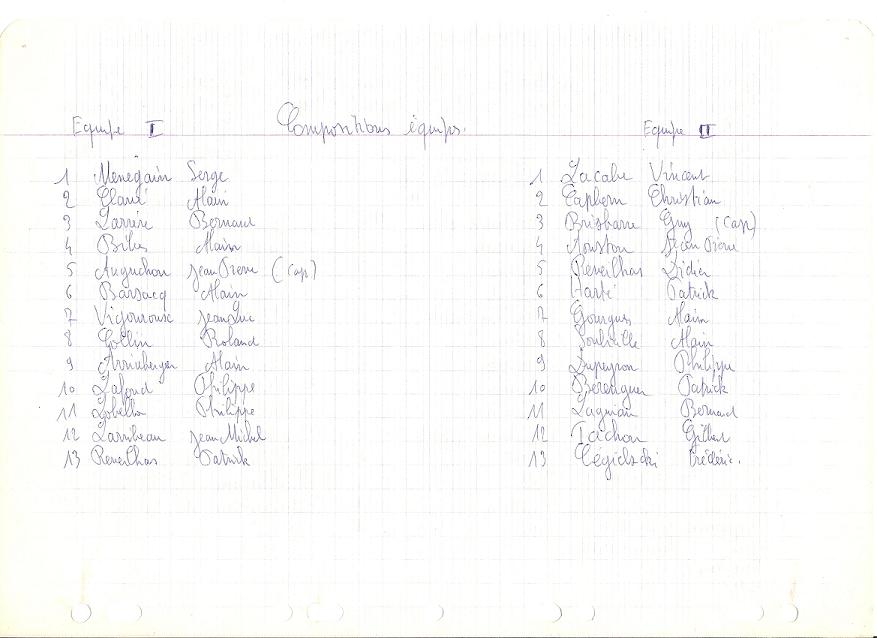 Equipe I
Compositions équipes.
Equipe II
1 Menegain Serge
2 Claré Alain
3 Larrère Bernard
4 Alain
5 Auguchon Jean Pierre (Cap)
6 Barsacq Alain
7 Vigouroux Jean Luc
8 Collin Roland
9 Alain
10 Lafond Philippe
11 Philippe
12 Larribeau Jean Michel
13 Reveilhas Patrick
1 Lacabe Vincent
2 Capbern Christian
3 Brisbarre Guy (Cap)
4 Jouston Jean Pierre
5 Reveilhas Didier
6 Harté Patrick
7 Gourgues Alain
8 Alain
9 Dupeyron Philippe
10 Berenguer Patrick
11 Lagnian Bernard
12 Tachon Gilbert
13 Frédéric.